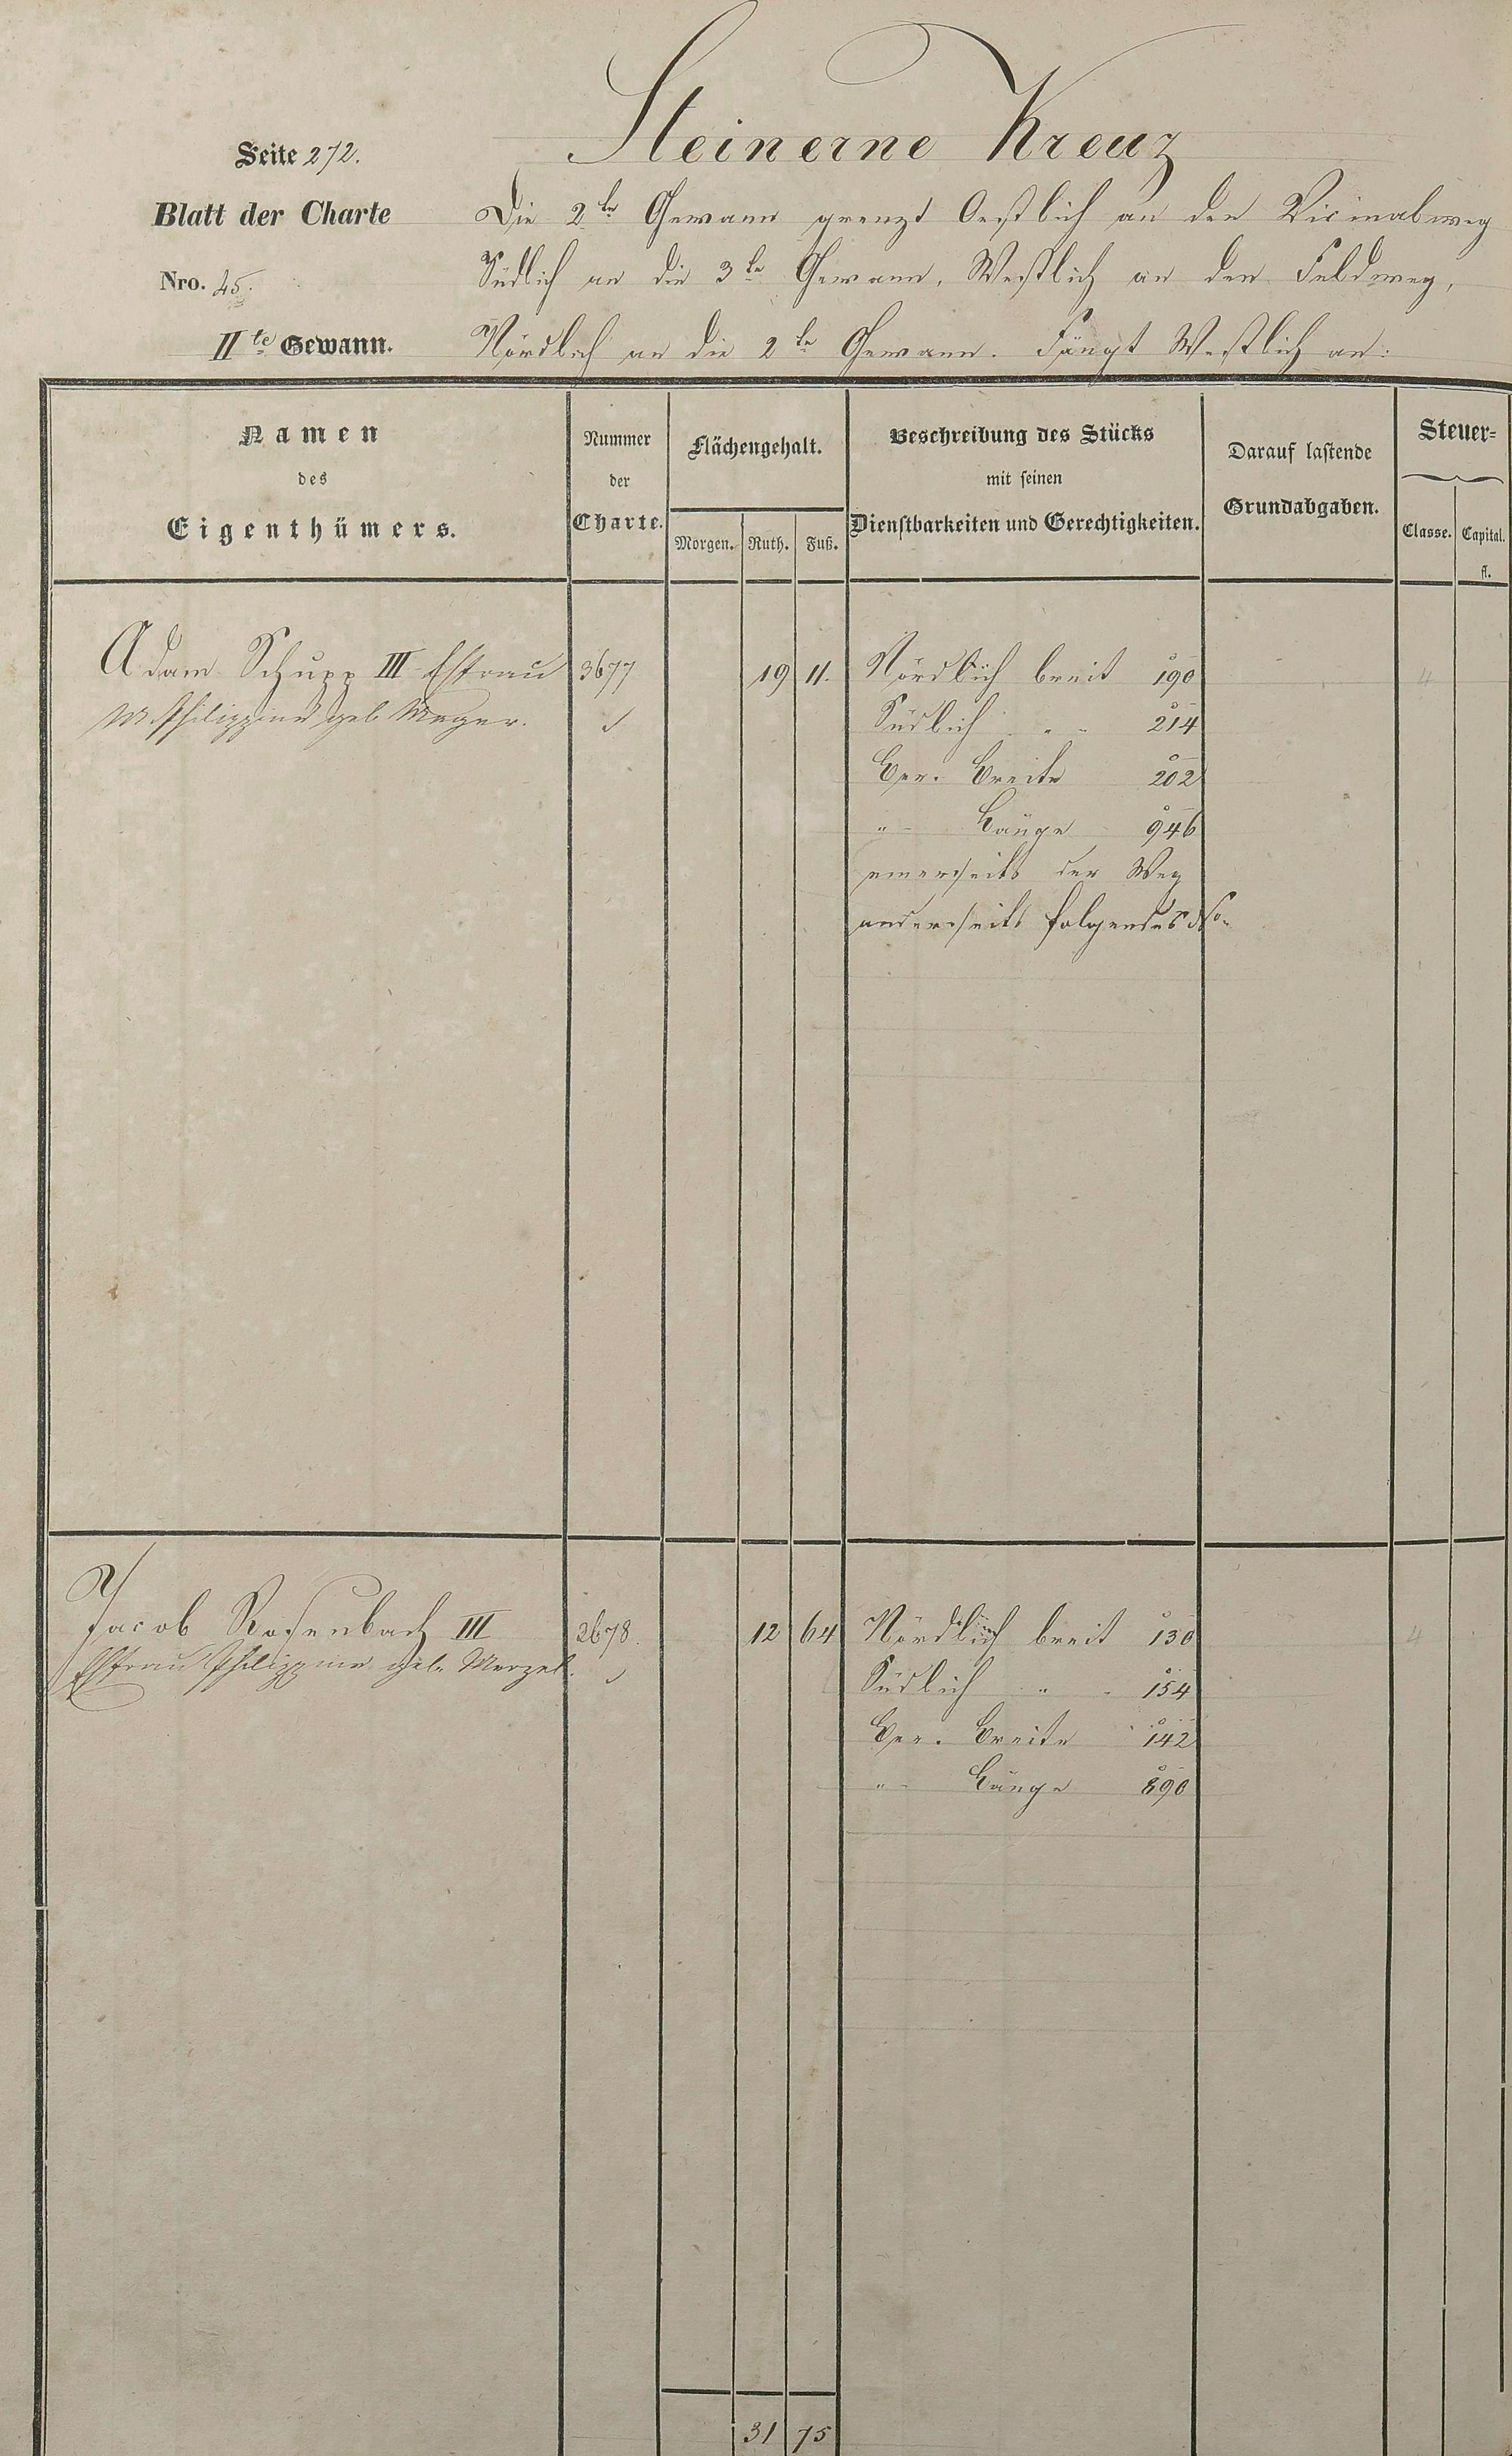 Steinerne Kreuz
Seite 272.
Blatt der Charte
Nro. 45.
IIte Gewann.
Die 2te Gewann grenzt Oestlich an den Vicinalweg
Südlich an die 3te Gewann, Westlich an den Feldweg,
Nördlich an die 2te Gewann. Fängt Westlich an:
Namen
des
Eigenthümers.
Nummer
der
Charte.
Flächengehalt.
Morgen. Ruth. Fuß.
Beschreibung des Stücks
mit seinen
Dienstbarkeiten und Gerechtigkeiten.
Darauf lastende
Grundabgaben.
Steuer=
Classe. Capital.
fl.
Adam Schupp III Ehfrau 3677 19 11. Nördlich breit 190 4
M. Philippine geb Mager. Südlich " - 214
Ger. Breite 202
" - Länge 946
einerseits der Weg
anderseits folgendes dso.
Jacob Rosenbach III 3678. 12 64 Nördlich breit 130 4
Ehfrau Philippine geb. Menzel. Südlich " - 154
Ger. Breite 142
" - Länge 890
31 75